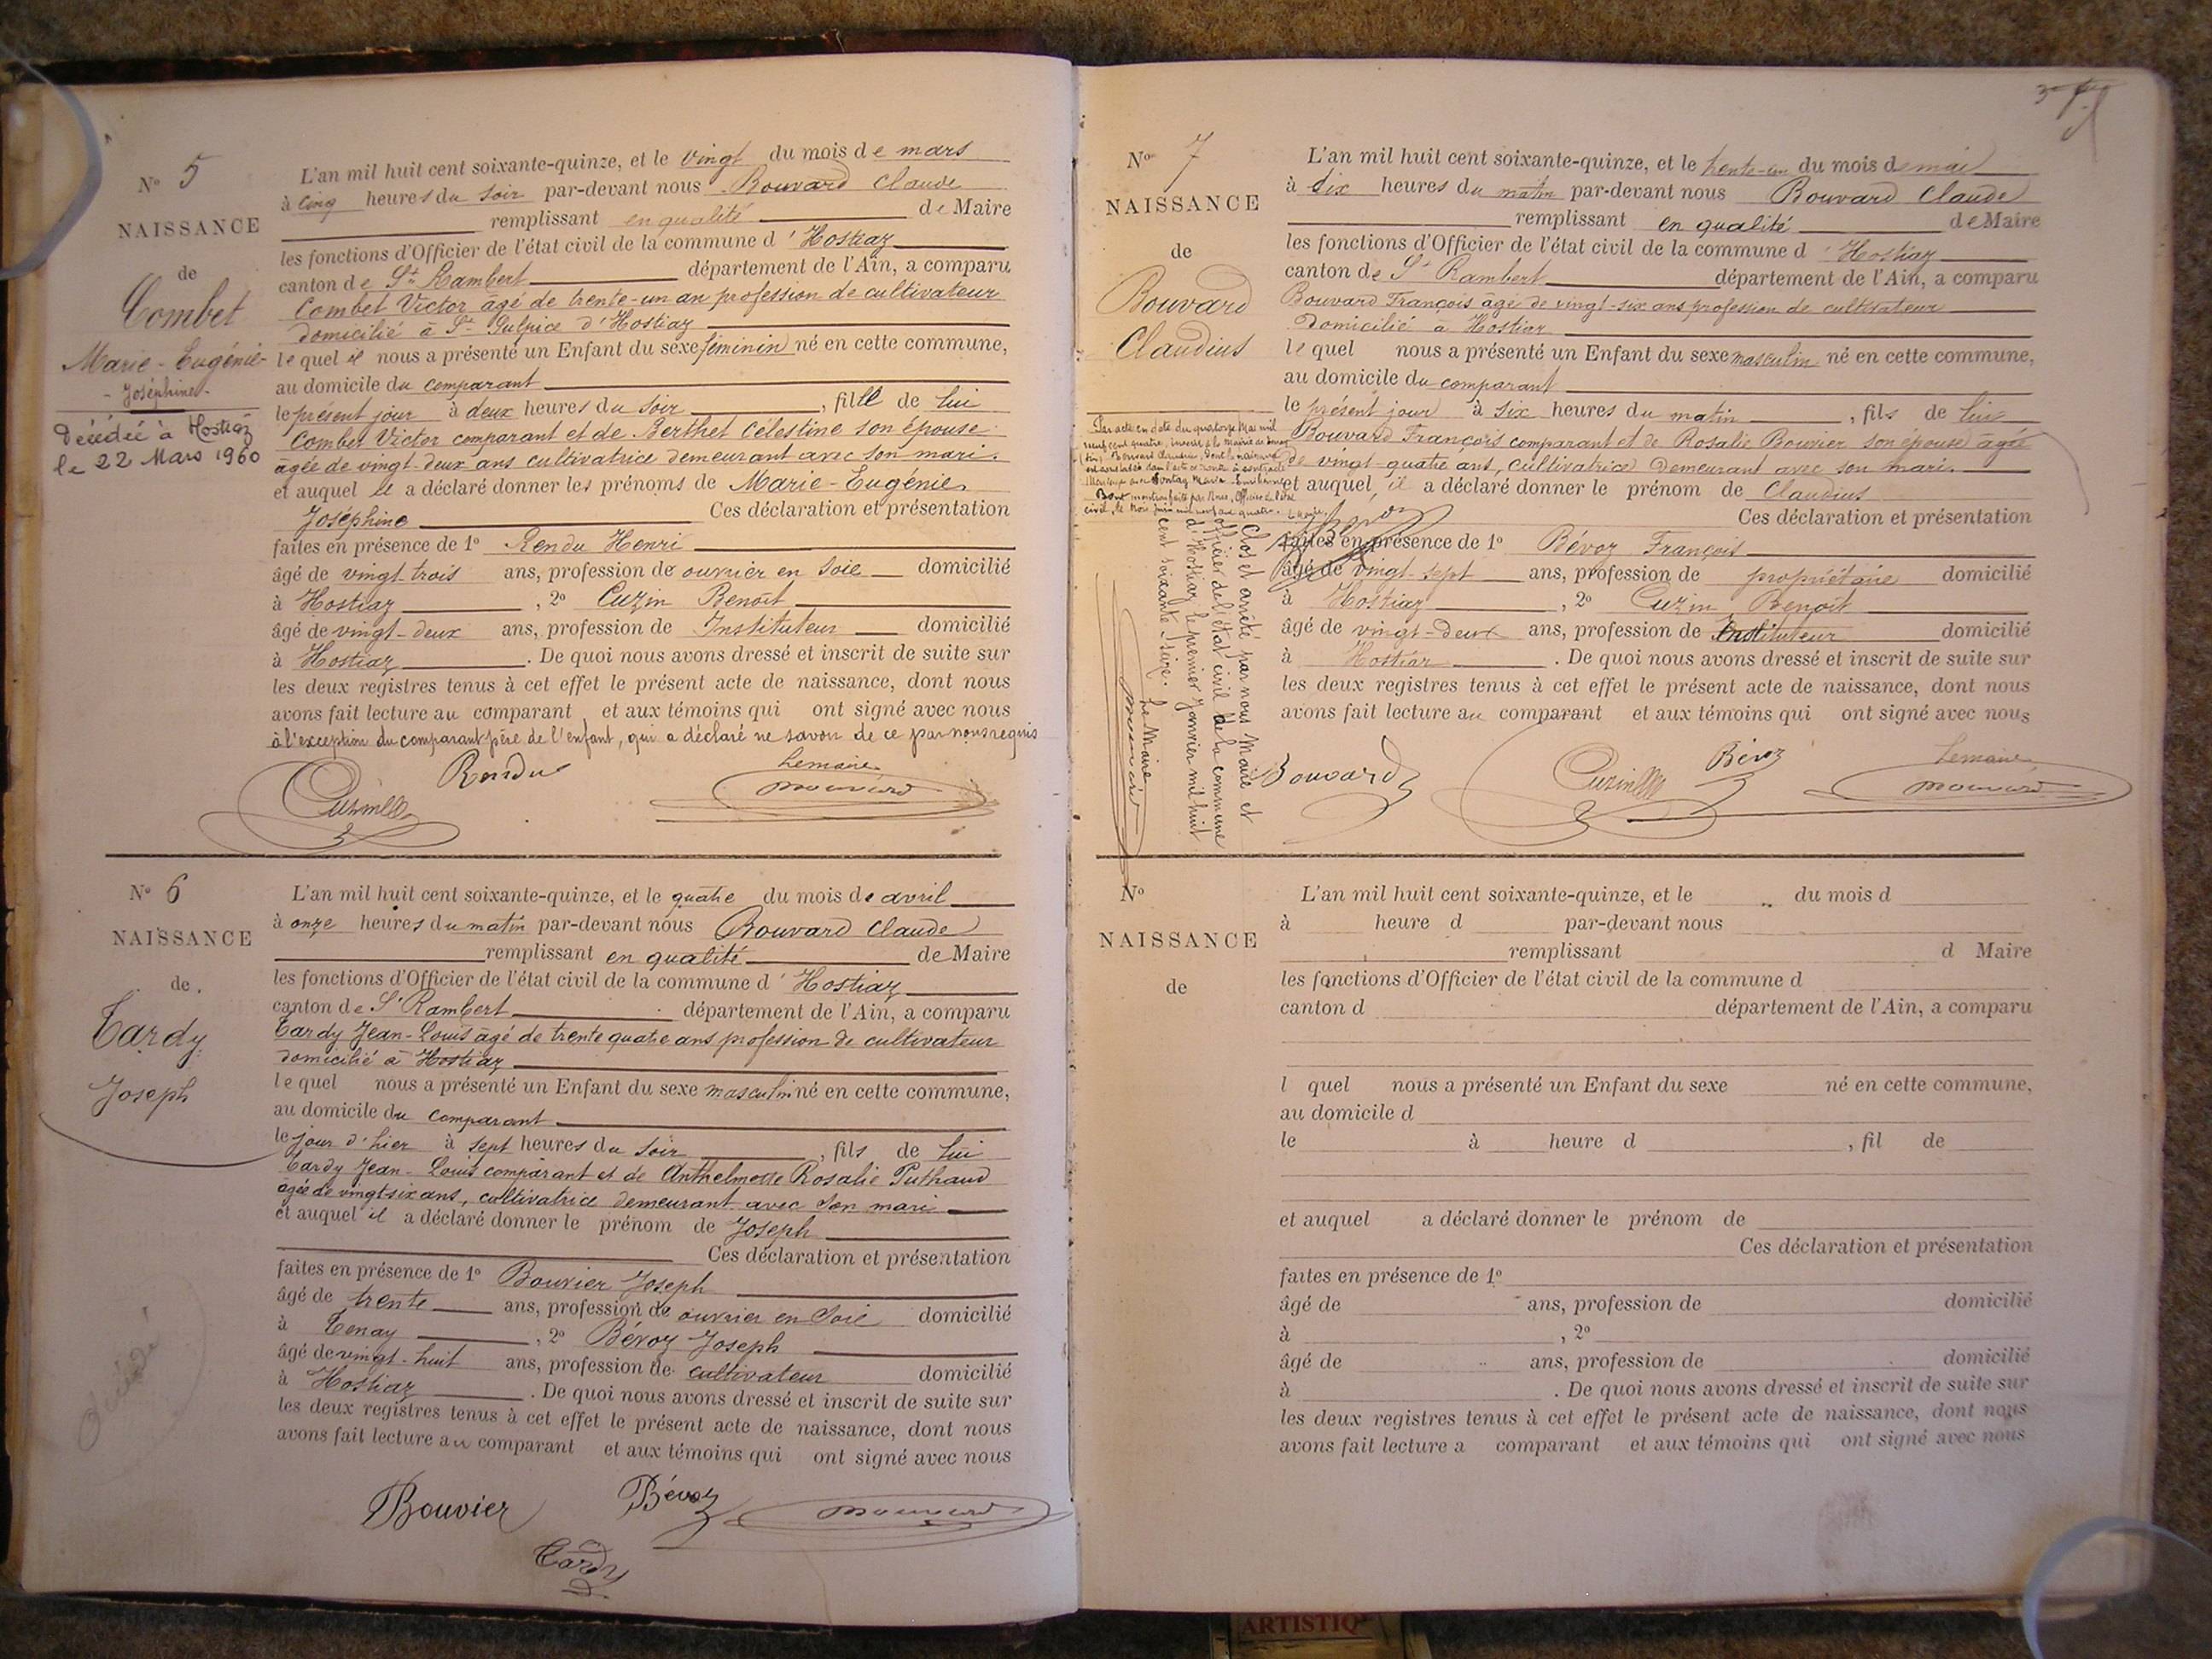 Nº 5
NAISSANCE
de
Combet
Marie-Eugénie-
-Joséphine-
Décédée à Hostiaz
le 22 Mars 1960
L'an mil huit cent soixante-quinze, et le vingt du mois de mars
à cinq heures du soir par-devant nous Bouvard Claude
remplissant en qualité de Maire
les fonctions d'Officier de l'état civil de la commune d'Hostiaz
canton de St Rambert département de l'Ain, a comparu
Combet Victor âgé de trente-un an profession de cultivateur
domicilié à St Sulpice d'Hostiaz
lequel il nous a présenté un Enfant du sexe féminin né en cette commune,
au domicile du comparant
le présent jour à deux heures du soir, fille de lui
Combet Victor comparant et de Berthet Célestine son épouse
âgée de vingt-deux ans cultivatrice demeurant avec son mari.
et auquel il a déclaré donner les prénoms de Marie-Eugénie
Joséphine Ces déclaration et présentation
faites en présence de 1º Rendu Henri
âgé de vingt-trois ans, profession de ouvrier en soie domicilié
à Hostiaz, 2º Cuzin Benoît
âgé de vingt-deux ans, profession de Instituteur domicilié
à Hostiaz. De quoi nous avons dressé et inscrit de suite sur
les deux registres tenus à cet effet le présent acte de naissance, dont nous
avons fait lecture au comparant et aux témoins qui ont signé avec nous
à l'exception du comparant père de l'enfant, qui a déclaré ne savoir de ce par nous requis
Rendu Lemaire
Cuzin Bouvard
Nº 6
NAISSANCE
de
Tardy
Joseph
Décédé
L'an mil huit cent soixante-quinze, et le quatre du mois de avril
à onze heures du matin par-devant nous Bouvard Claude
remplissant en qualité de Maire
les fonctions d'Officier de l'état civil de la commune d'Hostiaz
canton de St Rambert département de l'Ain, a comparu
Tardy Jean-Louis âgé de trente quatre ans profession de cultivateur
domicilié à Hostiaz
lequel nous a présenté un Enfant du sexe masculin né en cette commune,
au domicile du comparant
le jour d'hier à sept heures du soir, fils de lui
Tardy Jean-Louis comparant et de Anthelmette Rosalie Puthaud
âgée de vingt six ans, cultivatrice demeurant avec son mari
et auquel il a déclaré donner le prénom de Joseph
Ces déclaration et présentation
faites en présence de 1º Bouvier Joseph
âgé de trente ans, profession de ouvrier en soie domicilié
à Tenay, 2º Bévoz Joseph
âgé de vingt-huit ans, profession de cultivateur domicilié
à Hostiaz. De quoi nous avons dressé et inscrit de suite sur
les deux registres tenus à cet effet le présent acte de naissance, dont nous
avons fait lecture au comparant et aux témoins qui ont signé avec nous
Bouvier Bévoz Bouvard
Tardy
Nº 7
NAISSANCE
de
Bouvard
Claudius
Par acte en date du quatorze Mai mil
neuf cent quatre, inscrit à la mairie de
Bouvard Claudius, dont la naissance
est constatée dans l'acte ci-contre a contracté
Mariage avec Marie
Dont mention faite par Nous, Officier de l'état
civil, le trois juin mil neuf cent quatre.
Clos et arrêté par nous Maire et
officier de l'état civil de la commune
d'Hostiaz le premier janvier mil huit
cent soixante-seize. Le Maire
Bouvard
L'an mil huit cent soixante-quinze, et le trente-un du mois de mai
à dix heures du matin par-devant nous Bouvard Claude
remplissant en qualité de Maire
les fonctions d'Officier de l'état civil de la commune d'Hostiaz
canton de St Rambert département de l'Ain, a comparu
Bouvard François âgé de vingt-six ans profession de cultivateur
domicilié à Hostiaz
lequel nous a présenté un Enfant du sexe masculin né en cette commune,
au domicile du comparant
le présent jour à six heures du matin, fils de lui
Bouvard François comparant et de Rosalie Bouvier son épouse âgée
de vingt-quatre ans, cultivatrice demeurant avec son mari.
et auquel il a déclaré donner le prénom de Claudius
Ces déclaration et présentation
faites en présence de 1º Bévoz François
âgé de vingt-sept ans, profession de propriétaire domicilié
à Hostiaz, 2º Cuzin Benoît
âgé de vingt-deux ans, profession de Instituteur domicilié
à Hostiaz. De quoi nous avons dressé et inscrit de suite sur
les deux registres tenus à cet effet le présent acte de naissance, dont nous
avons fait lecture au comparant et aux témoins qui ont signé avec nous
Bouvard Cuzin Bévoz Lemaire
Bouvard
Nº
NAISSANCE
de
L'an mil huit cent soixante-quinze, et le du mois d
à heure d par-devant nous
remplissant d Maire
les fonctions d'Officier de l'état civil de la commune d
canton d département de l'Ain, a comparu
l quel nous a présenté un Enfant du sexe né en cette commune,
au domicile d
le à heure d , fil de
et auquel a déclaré donner le prénom de
Ces déclaration et présentation
faites en présence de 1º
âgé de ans, profession de domicilié
à , 2º
âgé de ans, profession de domicilié
à . De quoi nous avons dressé et inscrit de suite sur
les deux registres tenus à cet effet le présent acte de naissance, dont nous
avons fait lecture a comparant et aux témoins qui ont signé avec nous
ARTISTIQ